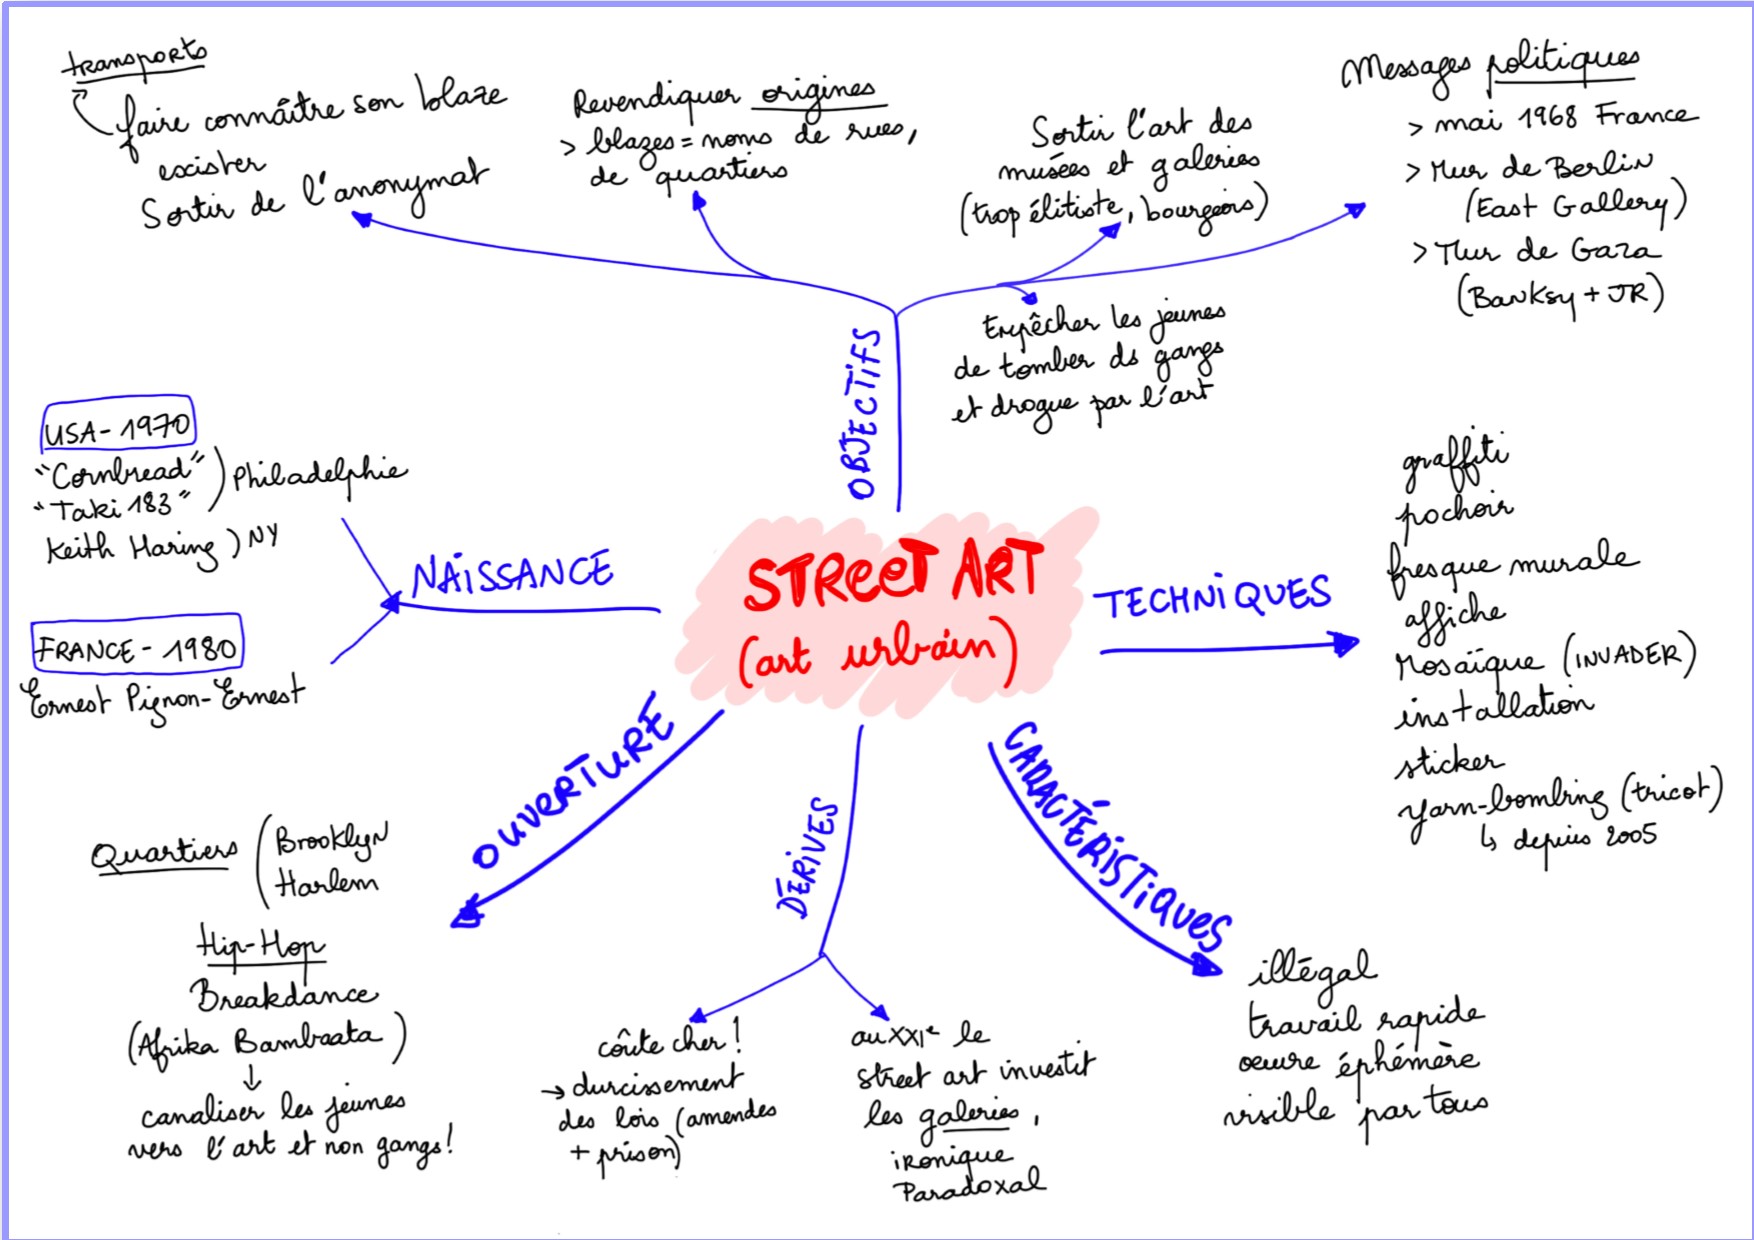 transports
faire connaître son blaze
exister
Sortir de l'anonymat
Revendiquer origines
> blazes = noms de rues,
de quartiers
Sortir l'art des
musées et galeries
(trop élitiste, bourgeois)
Messages politiques
> mai 1968 France
> Mur de Berlin
(East Gallery)
> Mur de Gaza
(Banksy + JR)
Empêcher les jeunes
de tomber ds gangs
et drogue par l'art
OBJECTIFS
USA - 1970
"Cornbread"
"Taki 183"
) Philadelphie
Keith Haring ) NY
NAISSANCE
FRANCE - 1980
Ernest Pignon-Ernest
STREET ART
(art urbain)
TECHNIQUES
graffiti
pochoir
fresque murale
affiche
Mosaïque (INVADER)
installation
sticker
yarn-bombing (tricot)
↳ depuis 2005
OUVERTURE
Quartiers (Brooklyn
Harlem
Hip-Hop
Breakdance
(Afrika Bambaata)
↓
canaliser les jeunes
vers l'art et non gangs!
DÉRIVES
coûte cher!
→ durcissement
des lois (amendes
+ prison)
au XXIe le
street art investit
les galeries,
ironique
Paradoxal
CARACTÉRISTIQUES
illégal
travail rapide
oeuvre éphémère
visible par tous